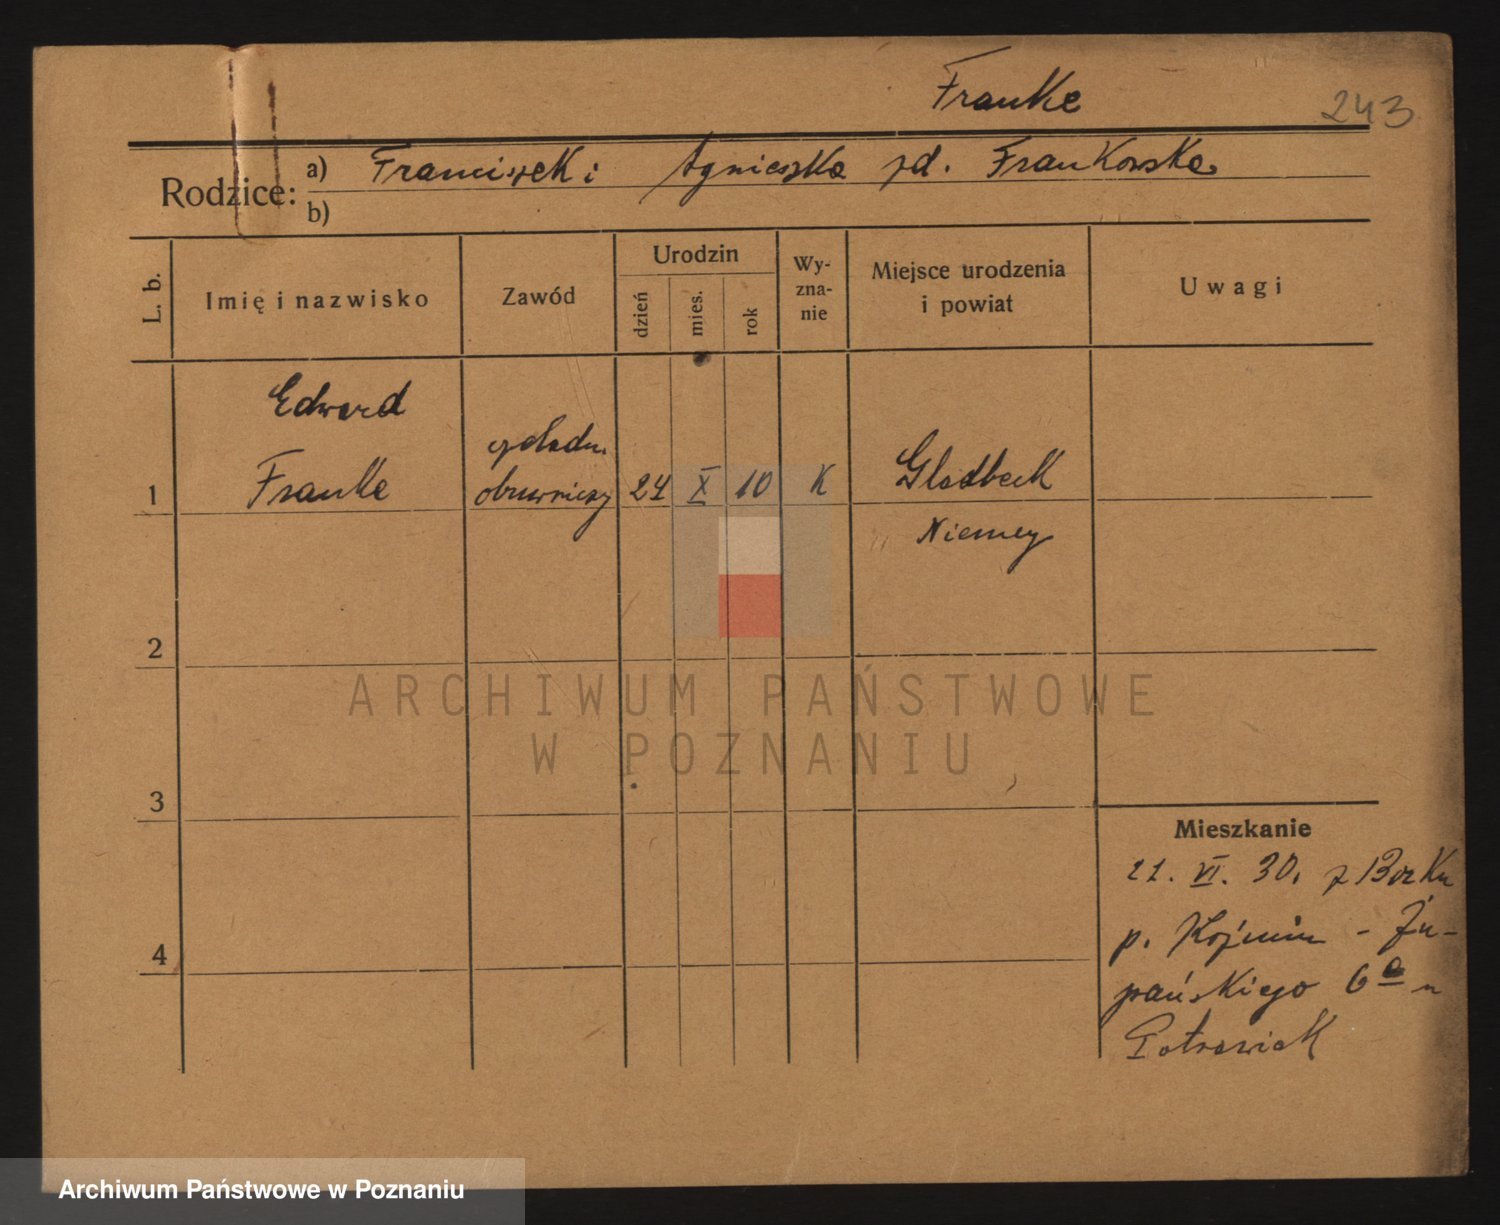 Franke
243
Rodzice: a) Franciszek i Agnieszka zd. Frankowska
b)
L. b.
Imię i nazwisko
Zawód
Urodzin
dzień
mies.
rok
Wy-
zna-
nie
Miejsce urodzenia
i powiat
Uwagi
Edward
czeladn.
1 Franke obuwniczy 24 X 10 K Gladbeck
Niemcy
2
ARCHIWUM PAŃSTWOWE
W POZNANIU
3
Mieszkanie
21. VI. 30. z Borku
p. Koźmin - Żu-
4
pańskiego 6a u
Potrawiak
Archiwum Państwowe w Poznaniu